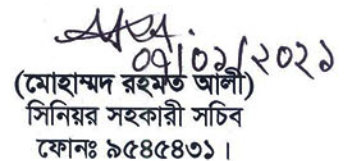 ০৭/০১/২০২১
(মোহাম্মদ রহমত আলী)
সিনিয়র সহকারী সচিব
ফোনঃ ৯৫৪৫৪৩১ ।